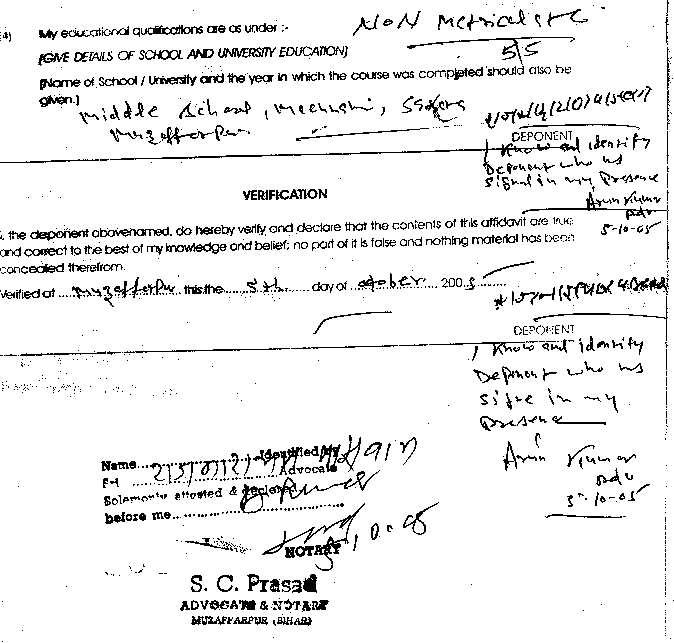 (4) My educational qualifications are as under :- NON Metricalate
[GIVE DETAILS OF SCHOOL AND UNIVERSITY EDUCATION] 5/5
[Name of School / University and the year in which the course was completed should also be
given.] Middle School,
Muzafferpur
DEPONENT
I Know and identify
Deponent who hs
signed in my Presence
Arun Kumar
Adv
5-10-05
VERIFICATION
I, the deponent abovenamed, do hereby verify and declare that the contents of this affidavit are true
and correct to the best of my knowledge and belief; no part of it is false and nothing material has been
concealed therefrom.
Verified at .... Muzafferpur this the ..... 5th ..... day of october 2005
DEPONENT
I Know and identity
Deponent who hs
signe in my
Presence
Arun Kumar
Adv
5-10-05
Identified by
Name
Advocate
Solemnly attested & declared
before me
5.10.05
NOTARY
S. C. Prasad
ADVOCATE & NOTARY
MUZAFFARPUR (BIHAR)